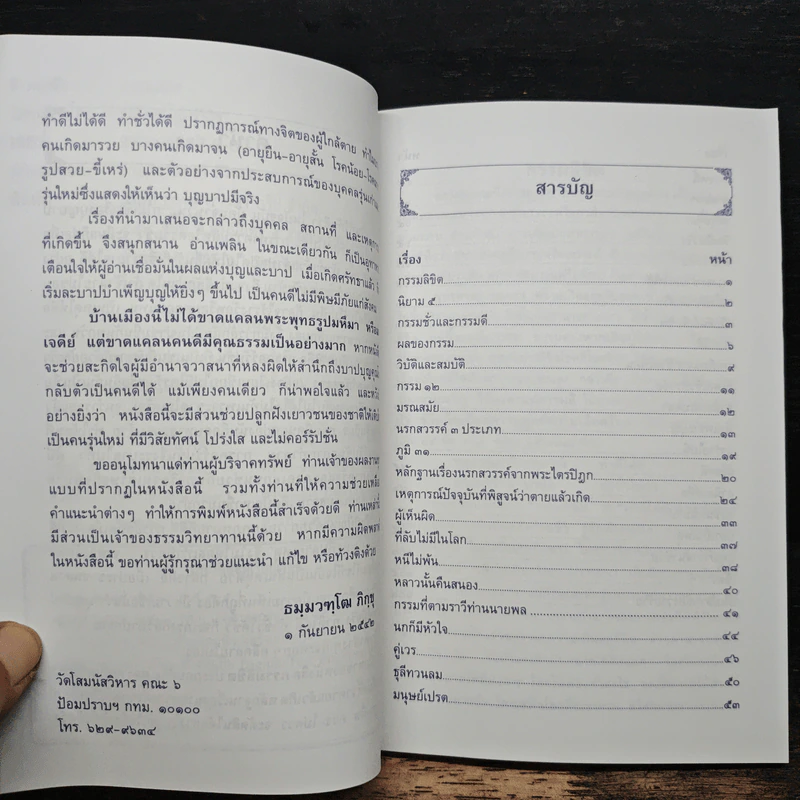 ทำดีไม่ได้ดี ทำชั่วได้ดี ปรากฏการณ์ทางจิตของผู้ใกล้ตาย
คนเกิดมารวย บางคนเกิดมาจน (อายุยืน-อายุสั้น โรคน้อย-โรค
รูปสวย-ขี้เหร่) และตัวอย่างจากประสบการณ์ของบุคคลรุ่นเก่า
รุ่นใหม่ซึ่งแสดงให้เห็นว่า บุญบาปมีจริง
เรื่องที่นำมาเสนอจะกล่าวถึงบุคคล สถานที่ และ
ที่เกิดขึ้น จึงสนุกสนาน อ่านเพลิน ในขณะเดียวกัน ก็เป็น
เตือนใจให้ผู้อ่านเชื่อมั่นในผลแห่งบุญและบาป เมื่อเกิดศรัทธาแล้ว
เริ่มละบาปบำเพ็ญบุญให้ยิ่งๆ ขึ้นไป เป็นคนดีไม่มีพิษมีภัยแก่สังคม
บ้านเมืองนี้ไม่ได้ขาดแคลนพระพุทธรูปมหึมา หรือ
เจดีย์ แต่ขาดแคลนคนดีมีคุณธรรมเป็นอย่างมาก หาก
จะช่วยสะกิดใจผู้มีอำนาจวาสนาที่หลงผิดให้สำนึกถึงบาปบุญคุณ
กลับตัวเป็นคนดีได้ แม้เพียงคนเดียว ก็น่าพอใจแล้ว และ
อย่างยิ่งว่า หนังสือนี้จะมีส่วนช่วยปลูกฝังเยาวชนของชาติให้
เป็นคนรุ่นใหม่ ที่มีวิสัยทัศน์ โปร่งใส และไม่คอร์รัปชั่น
ขออนุโมทนาแด่ท่านผู้บริจาคทรัพย์ ท่านเจ้าของผลงาน
แบบที่ปรากฏในหนังสือนี้ รวมทั้งท่านที่ให้ความช่วยเหลือ
คำแนะนำต่างๆ ทำให้การพิมพ์หนังสือนี้สำเร็จด้วยดี ท่านเหล่านี้
มีส่วนเป็นเจ้าของธรรมวิทยาทานนี้ด้วย หากมีความผิดพลาด
ในหนังสือนี้ ขอท่านผู้รู้กรุณาช่วยแนะนำ แก้ไข หรือท้วงติงด้วย
ธมฺมวฑฺโฒ ภิกฺขุ
๑ กันยายน ๒๕๔๒
วัดโสมนัสวิหาร คณะ ๖
ป้อมปราบฯ กทม. ๑๐๑๐๐
โทร. ๖๒๙-๙๖๓๔
สารบัญ
เรื่อง หน้า
กรรมลิขิต ๑
นิยาม ๕ ๒
กรรมชั่วและกรรมดี ๓
ผลของกรรม ๖
วิบัติและสมบัติ ๙
กรรม ๑๒ ๑๑
มรณสมัย ๑๒
นรกสวรรค์ ๓ ประเภท ๑๓
ภูมิ ๓๑ ๑๙
หลักฐานเรื่องนรกสวรรค์จากพระไตรปิฎก ๒๐
เหตุการณ์ปัจจุบันที่พิสูจน์ว่าตายแล้วเกิด ๒๔
ผู้เห็นผิด ๓๓
ที่ลับไม่มีในโลก ๓๗
หนีไม่พ้น ๓๘
หลาวนั้นคืนสนอง ๔๐
กรรมที่ตามราวีท่านนายพล ๔๑
นกก็มีหัวใจ ๔๔
คู่เวร ๔๖
ธุลีทวนลม ๕๐
มนุษย์เปรต ๕๓